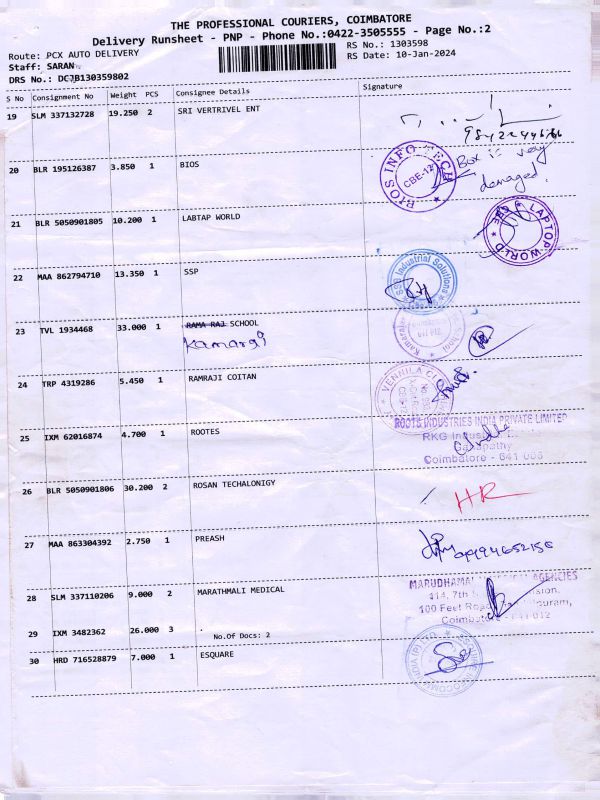 THE PROFESSIONAL COURIERS, COIMBATORE
Delivery Runsheet - PNP - Phone No.:0422-3505555 - Page No.:2
Route: PCX AUTO DELIVERY
RS No.: 1303598
Staff: SARAN
RS Date: 10-Jan-2024
DRS No.: DCJB130359802
S No Consignment No Weight PCS Consignee Details Signature
19 SLM 337132728 19.250 2 SRI VERTRIVEL ENT
20 BLR 195126387 3.850 1 BIOS
BIOS INFO TECH CBE-12
Box is very
damaged.
21 BLR 5050901805 10.200 1 LABTAP WORLD
LAPTOP WORLD
22 MAA 862794710 13.350 1 SSP
Industrial Solutions
23 TVL 1934468 33.000 1 RAMA RAJ SCHOOL
Kamaraj
24 TRP 4319286 5.450 1 RAMRAJI COITAN
VENNILA
25 IXM 62016874 4.700 1 ROOTES
ROOTS INDUSTRIES INDIA PRIVATE LIMITED
RKG
Ganapathy
Coimbatore - 641 006
26 BLR 5050901806 30.200 2 ROSAN TECHALONIGY
HR
27 MAA 863304392 2.750 1 PREASH
28 SLM 337110206 9.000 2 MARATHMALI MEDICAL
AGENCIES
114, 7th
100 Feet Road
29 IXM 3482362 26.000 3 .
No.Of Docs: 2
30 HRD 716528879 7.000 1 ESQUARE